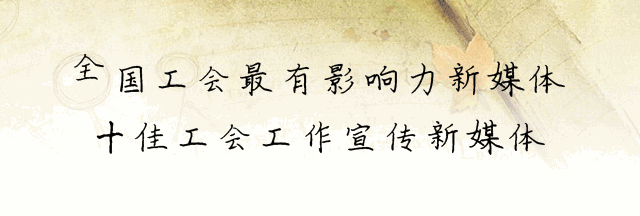 全国工会最有影响力新媒体
十佳工会工作宣传新媒体